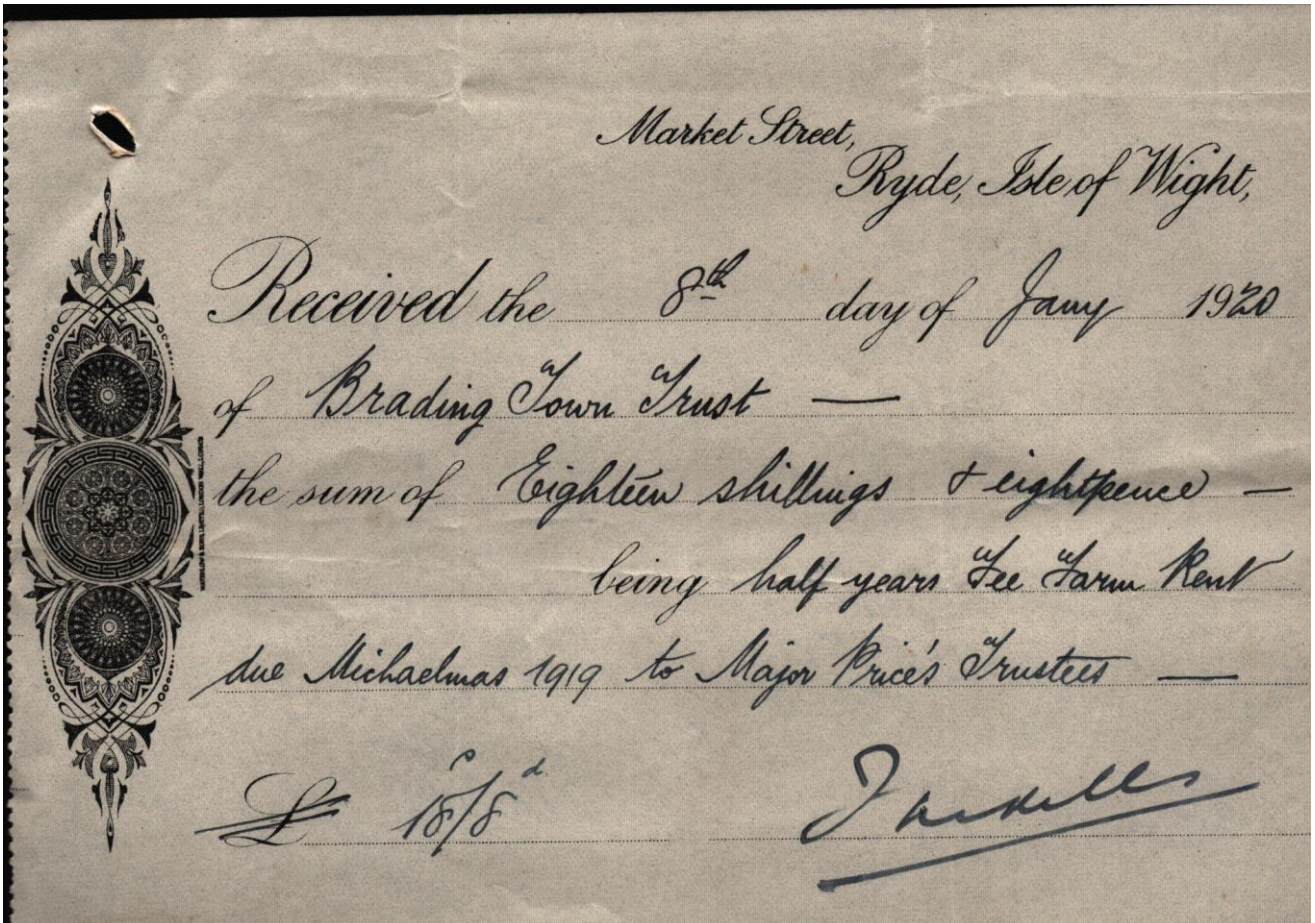 Market Street,
Ryde, Isle of Wight,
Received the 8th day of Jany 1920
of Brading Town Trust —
the sum of Eighteen shillings & eightpence —
being half years Fee Farm Rent
due Michaelmas 1919 to Major Price's Trustees —
£ 18s/8d